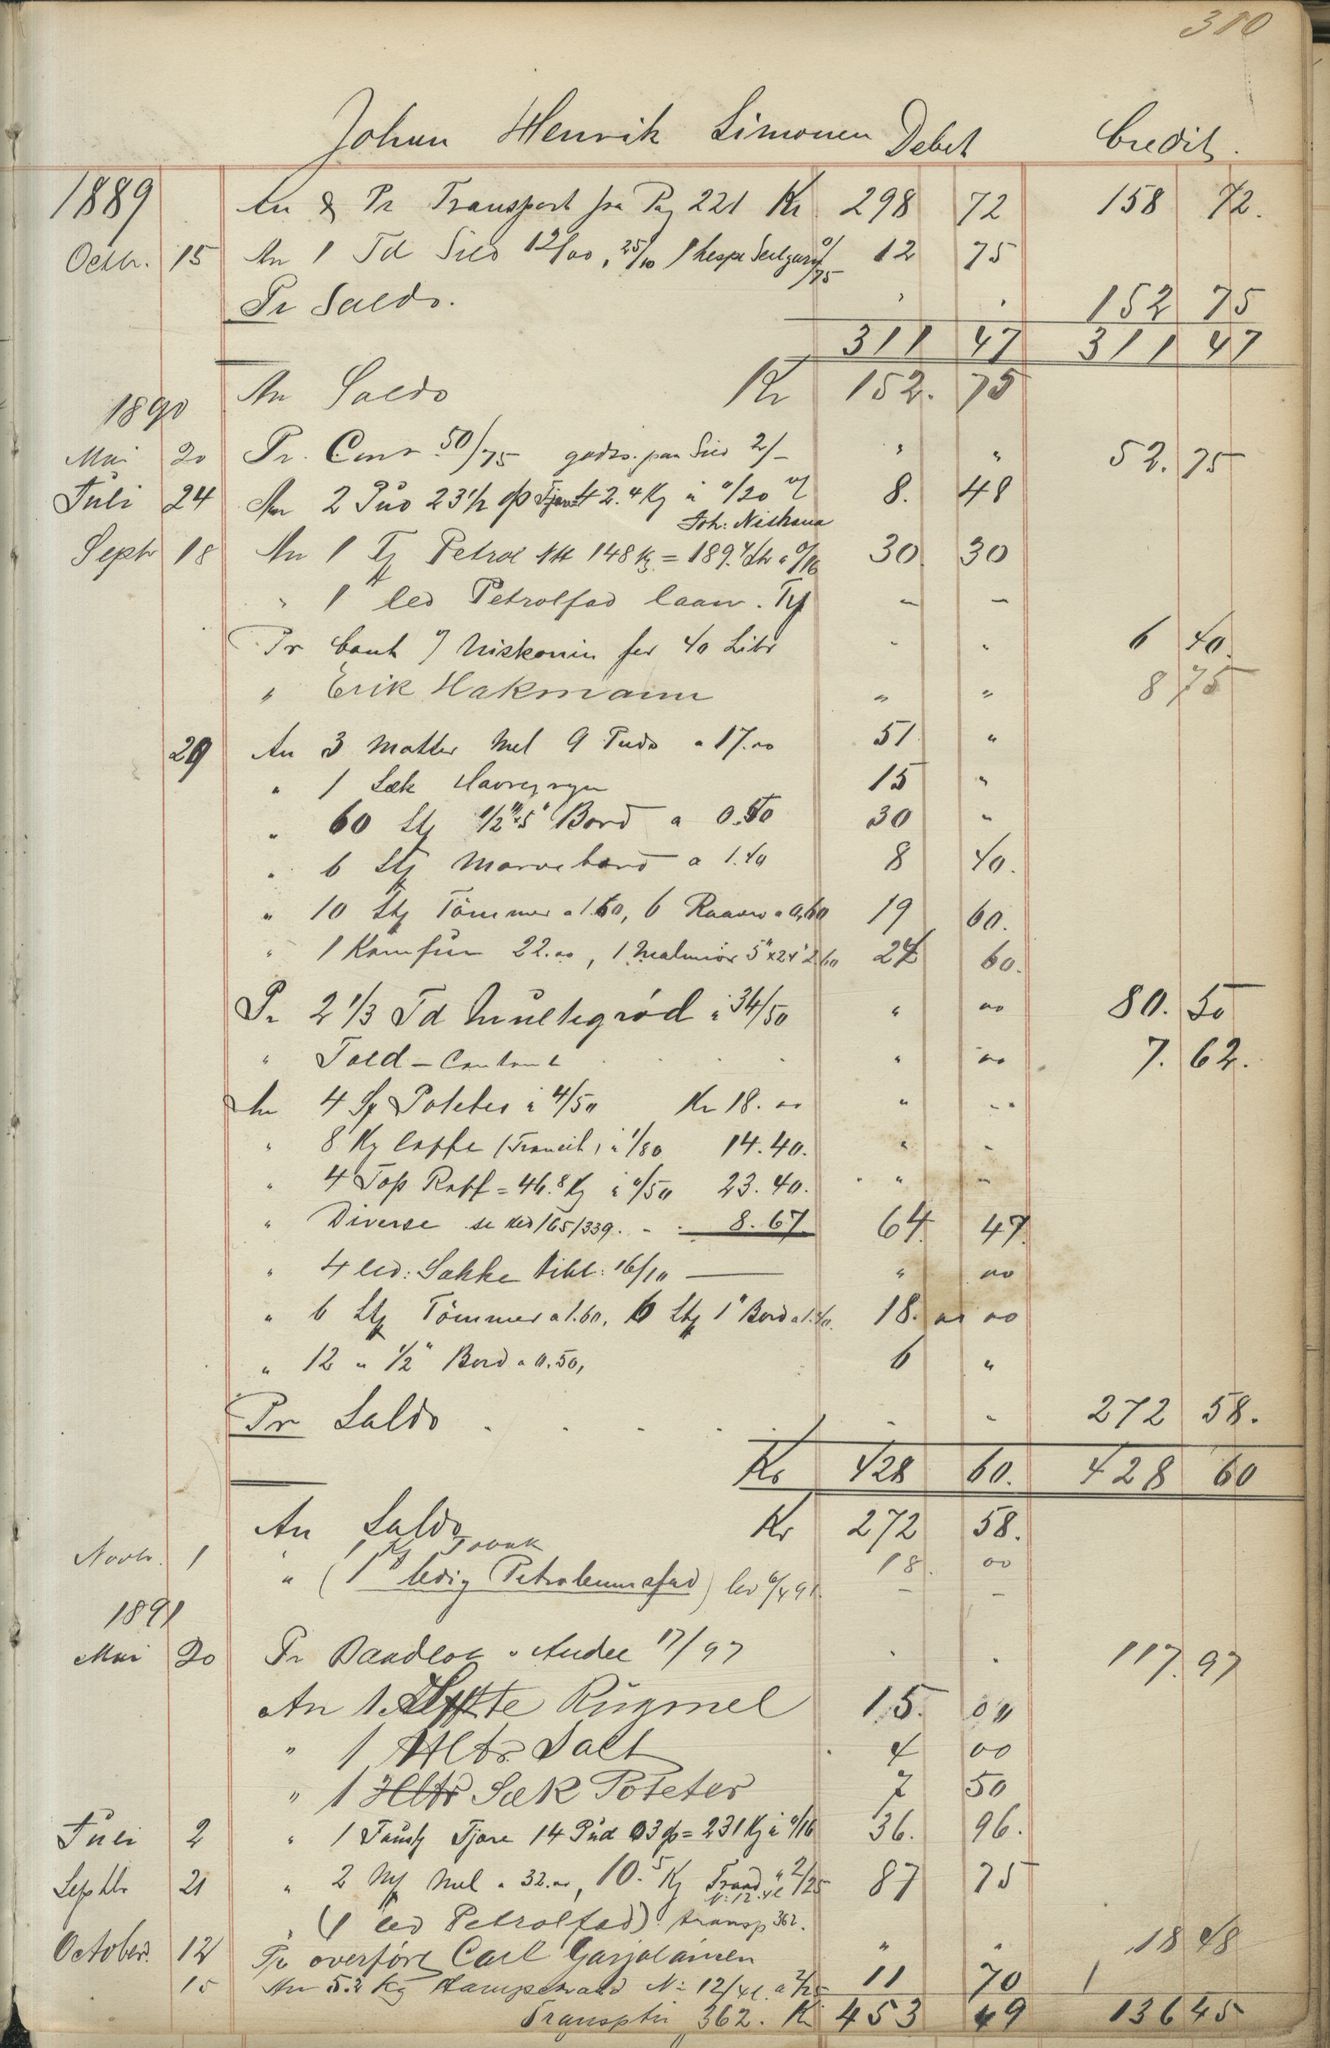 310
Johan Henrik Simonen Debet Credit.
1889 An & Pr Transport fra Pag 221 Kr 298 72 158 72.
Octbr. 15 An 1 Td Sild 12/00, 25/10 1 hespe Seilgarn 0/75 12 75
Pr Saldo. 152 75
311 47 311 47
An Saldo Kr 152. 75
1890
Mai 20 Pr. Cont 50/75 godts. paa Sild 2/- " " 52. 75
Juli 24 An 2 Pud 23 1/2 ℔ Tjære 42.4 Kg à 0/20 8. 48
Joh: Niskana
Septr 18 An 1 Fj Petrol Ntt 148 Kg = 189.4 Ltr a 0/16 30. 30
" 1 led Petrolfad laan. - -
Pr Cont Niskonin for 40 Litr - - 6 40.
" Erik Hakmann " " 8 75
29 An 3 Matter Mel 9 Puds a 17.00 51 "
" 1 Sæk Havregryn 15 "
" 60 Stk 1/2" x 5" Bord a 0.50 30 "
" 6 Stk bord a 1.40 8 40.
" 10 Stk Tømmer a 1.60, 6 a 0,60 19 60.
" 1 Komfür 22.00, 1 5" x 24" 2.60 24 60.
Pr 2 1/3 Td Multegrød à 34/50 " 00 80. 50
" Told - Contant " 00 7. 62.
An 4 Poteter à 4/50 Kr 18. 00 " "
" 8 Kg Caffe (Transit) à 1/80 14. 40. " -
" 4 Top Raff = 46.8 Kg à 0/50 23. 40. " -
" Diverse se 165/339. - - 8. 67. 64. 47.
" 4 led: Sække 16/10 — " 00
" 6 Stk Tømmer a 1.60, 6 Stk 1" Bord a 1.40. 18. 00 00
" 12 " 1/2" Bord a 0.50, 6 "
Pr Saldo - - 272 58.
Kr 428 60. 428 60
An Saldo Kr 272 58.
Novbr. 1 " 1 Kg 18. 00
" (1 ledig Petroleumsfad) lev 6/4 91. - -
1891
Mai 20 Pr 17/97 117. 97
An 1 Rügmel 15. 00
" 1 Hltr. Salt 4 00
" 1 Hltr Sæk Poteter 7 50
Juli 2 " 1 Tjære 14 Pud 03 ℔ = 231 Kg à 0/16 36. 96.
Septbr 21 " 2 Mel a 32.00, 10.5 Kg Traad a 2/25 87 75
N: 12.4l
" (1 led Petrolfad) transp 362.
October. 12 Pr overført Carl Garjalainen " " 18 48
15 An 5.2 Kg Hampetraad N: 12/4l. a 2/25 11 70
Transptil 362. Kr 453 49 136 45